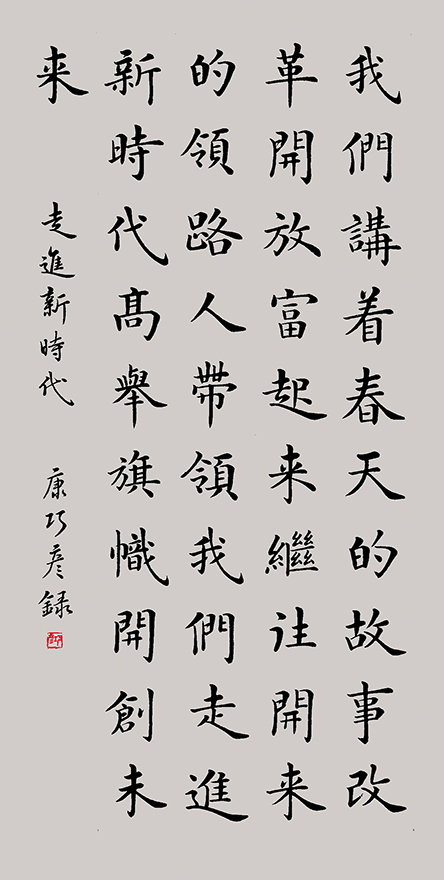 我們講着春天的故事改
革開放富起来繼往開来
的領路人帶領我們走進
新時代髙舉旗幟開創未
来
走進新時代 康巧彦録